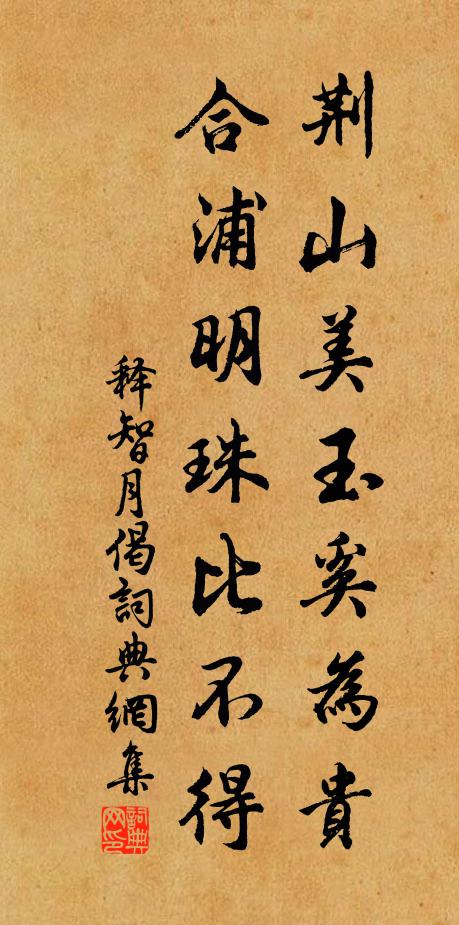 荆山美玉奚為貴
合浦明珠比不得
释智月偈詞典網集
詞典網印